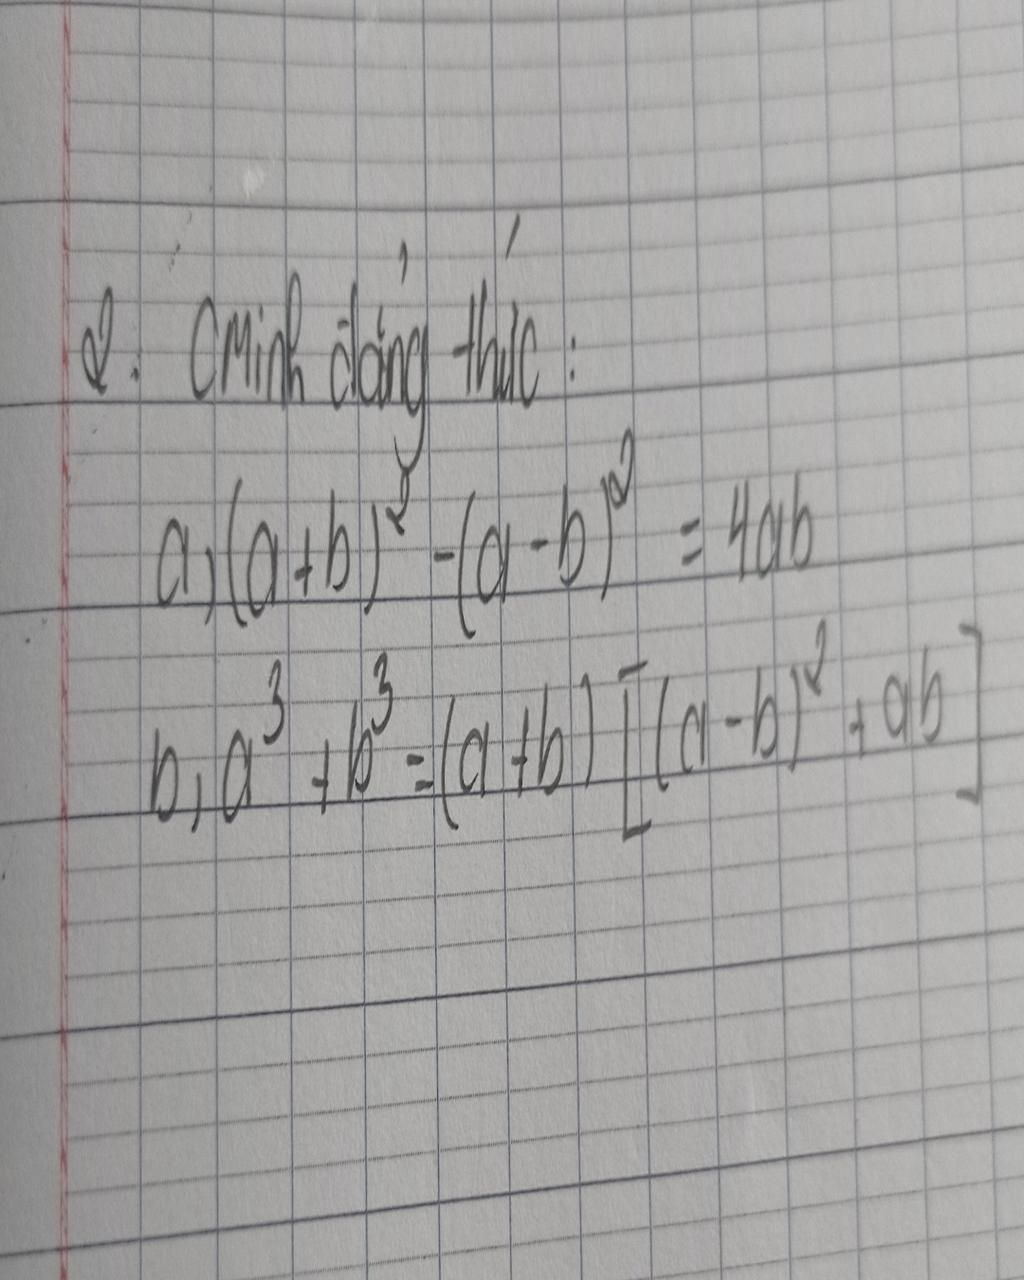 2. CMinh đẳng thức:
a, (a+b)² - (a-b)² = 4ab
b, a³ + b³ = (a+b) [(a-b)² + ab]